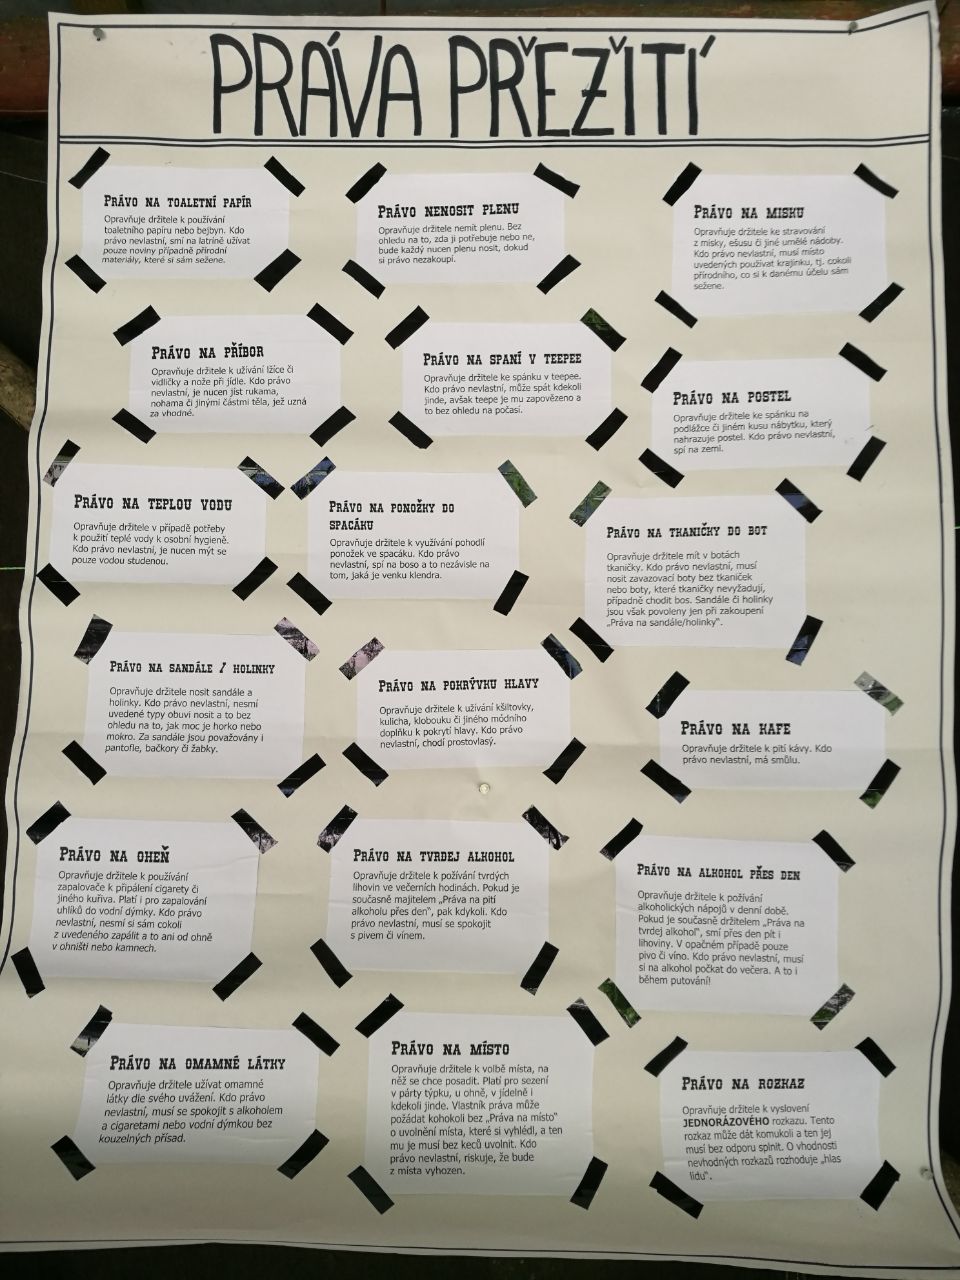 PRÁVA PŘEŽITÍ
PRÁVO NA TOALETNÍ PAPÍR
Opravňuje držitele k používání
toaletního papíru nebo bejbyn. Kdo
právo nevlastní, smí na latríně užívat
pouze noviny případně přírodní
materiály, které si sám sežene.
PRÁVO NENOSIT PLENU
Opravňuje držitele nemít plenu. Bez
ohledu na to, zda ji potřebuje nebo ne,
bude každý nucen plenu nosit, dokud
si právo nezakoupí.
PRÁVO NA MISKU
Opravňuje držitele ke stravování
z misky, ešusu či jiné umělé nádoby.
Kdo právo nevlastní, musí místo
uvedených používat krajinku, tj. cokoli
přírodního, co si k danému účelu sám
sežene.
PRÁVO NA PŘÍBOR
Opravňuje držitele k užívání lžíce či
vidličky a nože při jídle. Kdo právo
nevlastní, je nucen jíst rukama,
nohama či jinými částmi těla, jež uzná
za vhodné.
PRÁVO NA SPANÍ V TEEPEE
Opravňuje držitele ke spánku v teepee.
Kdo právo nevlastní, může spát kdekoli
jinde, avšak teepe je mu zapovězeno a
to bez ohledu na počasí.
PRÁVO NA POSTEL
Opravňuje držitele ke spánku na
podlážce či jiném kusu nábytku, který
nahrazuje postel. Kdo právo nevlastní,
spí na zemi.
PRÁVO NA TEPLOU VODU
Opravňuje držitele v případě potřeby
k použití teplé vody k osobní hygieně.
Kdo právo nevlastní, je nucen mýt se
pouze vodou studenou.
PRÁVO NA PONOŽKY DO
SPACÁKU
Opravňuje držitele k využívání pohodlí
ponožek ve spacáku. Kdo právo
nevlastní, spí na boso a to nezávisle na
tom, jaká je venku klendra.
PRÁVO NA TKANIČKY DO BOT
Opravňuje držitele mít v botách
tkaničky. Kdo právo nevlastní, musí
nosit zavazovací boty bez tkaniček
nebo boty, které tkaničky nevyžadují,
případně chodit bos. Sandále či holínky
jsou však povoleny jen při zakoupení
„Práva na sandále/holinky".
PRÁVO NA SANDÁLE / HOLINKY
Opravňuje držitele nosit sandále a
holinky. Kdo právo nevlastní, nesmí
uvedené typy obuvi nosit a to bez
ohledu na to, jak moc je horko nebo
mokro. Za sandále jsou považovány i
pantofle, bačkory či žabky.
PRÁVO NA POKRÝVKU HLAVY
Opravňuje držitele k užívání kšiltovky,
kulicha, klobouku či jiného módního
doplňku k pokrytí hlavy. Kdo právo
nevlastní, chodí prostovlasý.
PRÁVO NA KAFE
Opravňuje držitele k pití kávy. Kdo
právo nevlastní, má smůlu.
PRÁVO NA OHEŇ
Opravňuje držitele k používání
zapalovače k připálení cigarety či
jiného kuřiva. Platí i pro zapalování
uhlíků do vodní dýmky. Kdo právo
nevlastní, nesmí si sám cokoli
z uvedeného zapálit a to ani od ohně
v ohništi nebo kamnech.
PRÁVO NA TVRDEJ ALKOHOL
Opravňuje držitele k požívání tvrdých
lihovin ve večerních hodinách. Pokud je
současně majitelem „Práva na pití
alkoholu přes den", pak kdykoli. Kdo
právo nevlastní, musí se spokojit
s pivem či vínem.
PRÁVO NA ALKOHOL PŘES DEN
Opravňuje držitele k požívání
alkoholických nápojů v denní době.
Pokud je současně držitelem „Práva na
tvrdej alkohol", smí přes den pít i
lihoviny. V opačném případě pouze
pivo či víno. Kdo právo nevlastní, musí
si na alkohol počkat do večera. A to i
během putování!
PRÁVO NA OMAMNÉ LÁTKY
Opravňuje držitele užívat omamné
látky dle svého uvážení. Kdo právo
nevlastní, musí se spokojit s alkoholem
a cigaretami nebo vodní dýmkou bez
kouzelných přísad.
PRÁVO NA MÍSTO
Opravňuje držitele k volbě místa, na
něž se chce posadit. Platí pro sezení
v párty týpku, u ohně, v jídelně i
kdekoli jinde. Vlastník práva může
požádat kohokoli bez „Práva na místo"
o uvolnění místa, které si vyhlédl, a ten
mu je musí bez keců uvolnit. Kdo
právo nevlastní, riskuje, že bude
z místa vyhozen.
PRÁVO NA ROZKAZ
Opravňuje držitele k vyslovení
JEDNORÁZOVÉHO rozkazu. Tento
rozkaz může dát komukoli a ten jej
musí bez odporu splnit. O vhodnosti
nevhodných rozkazů rozhoduje „hlas
lidu".